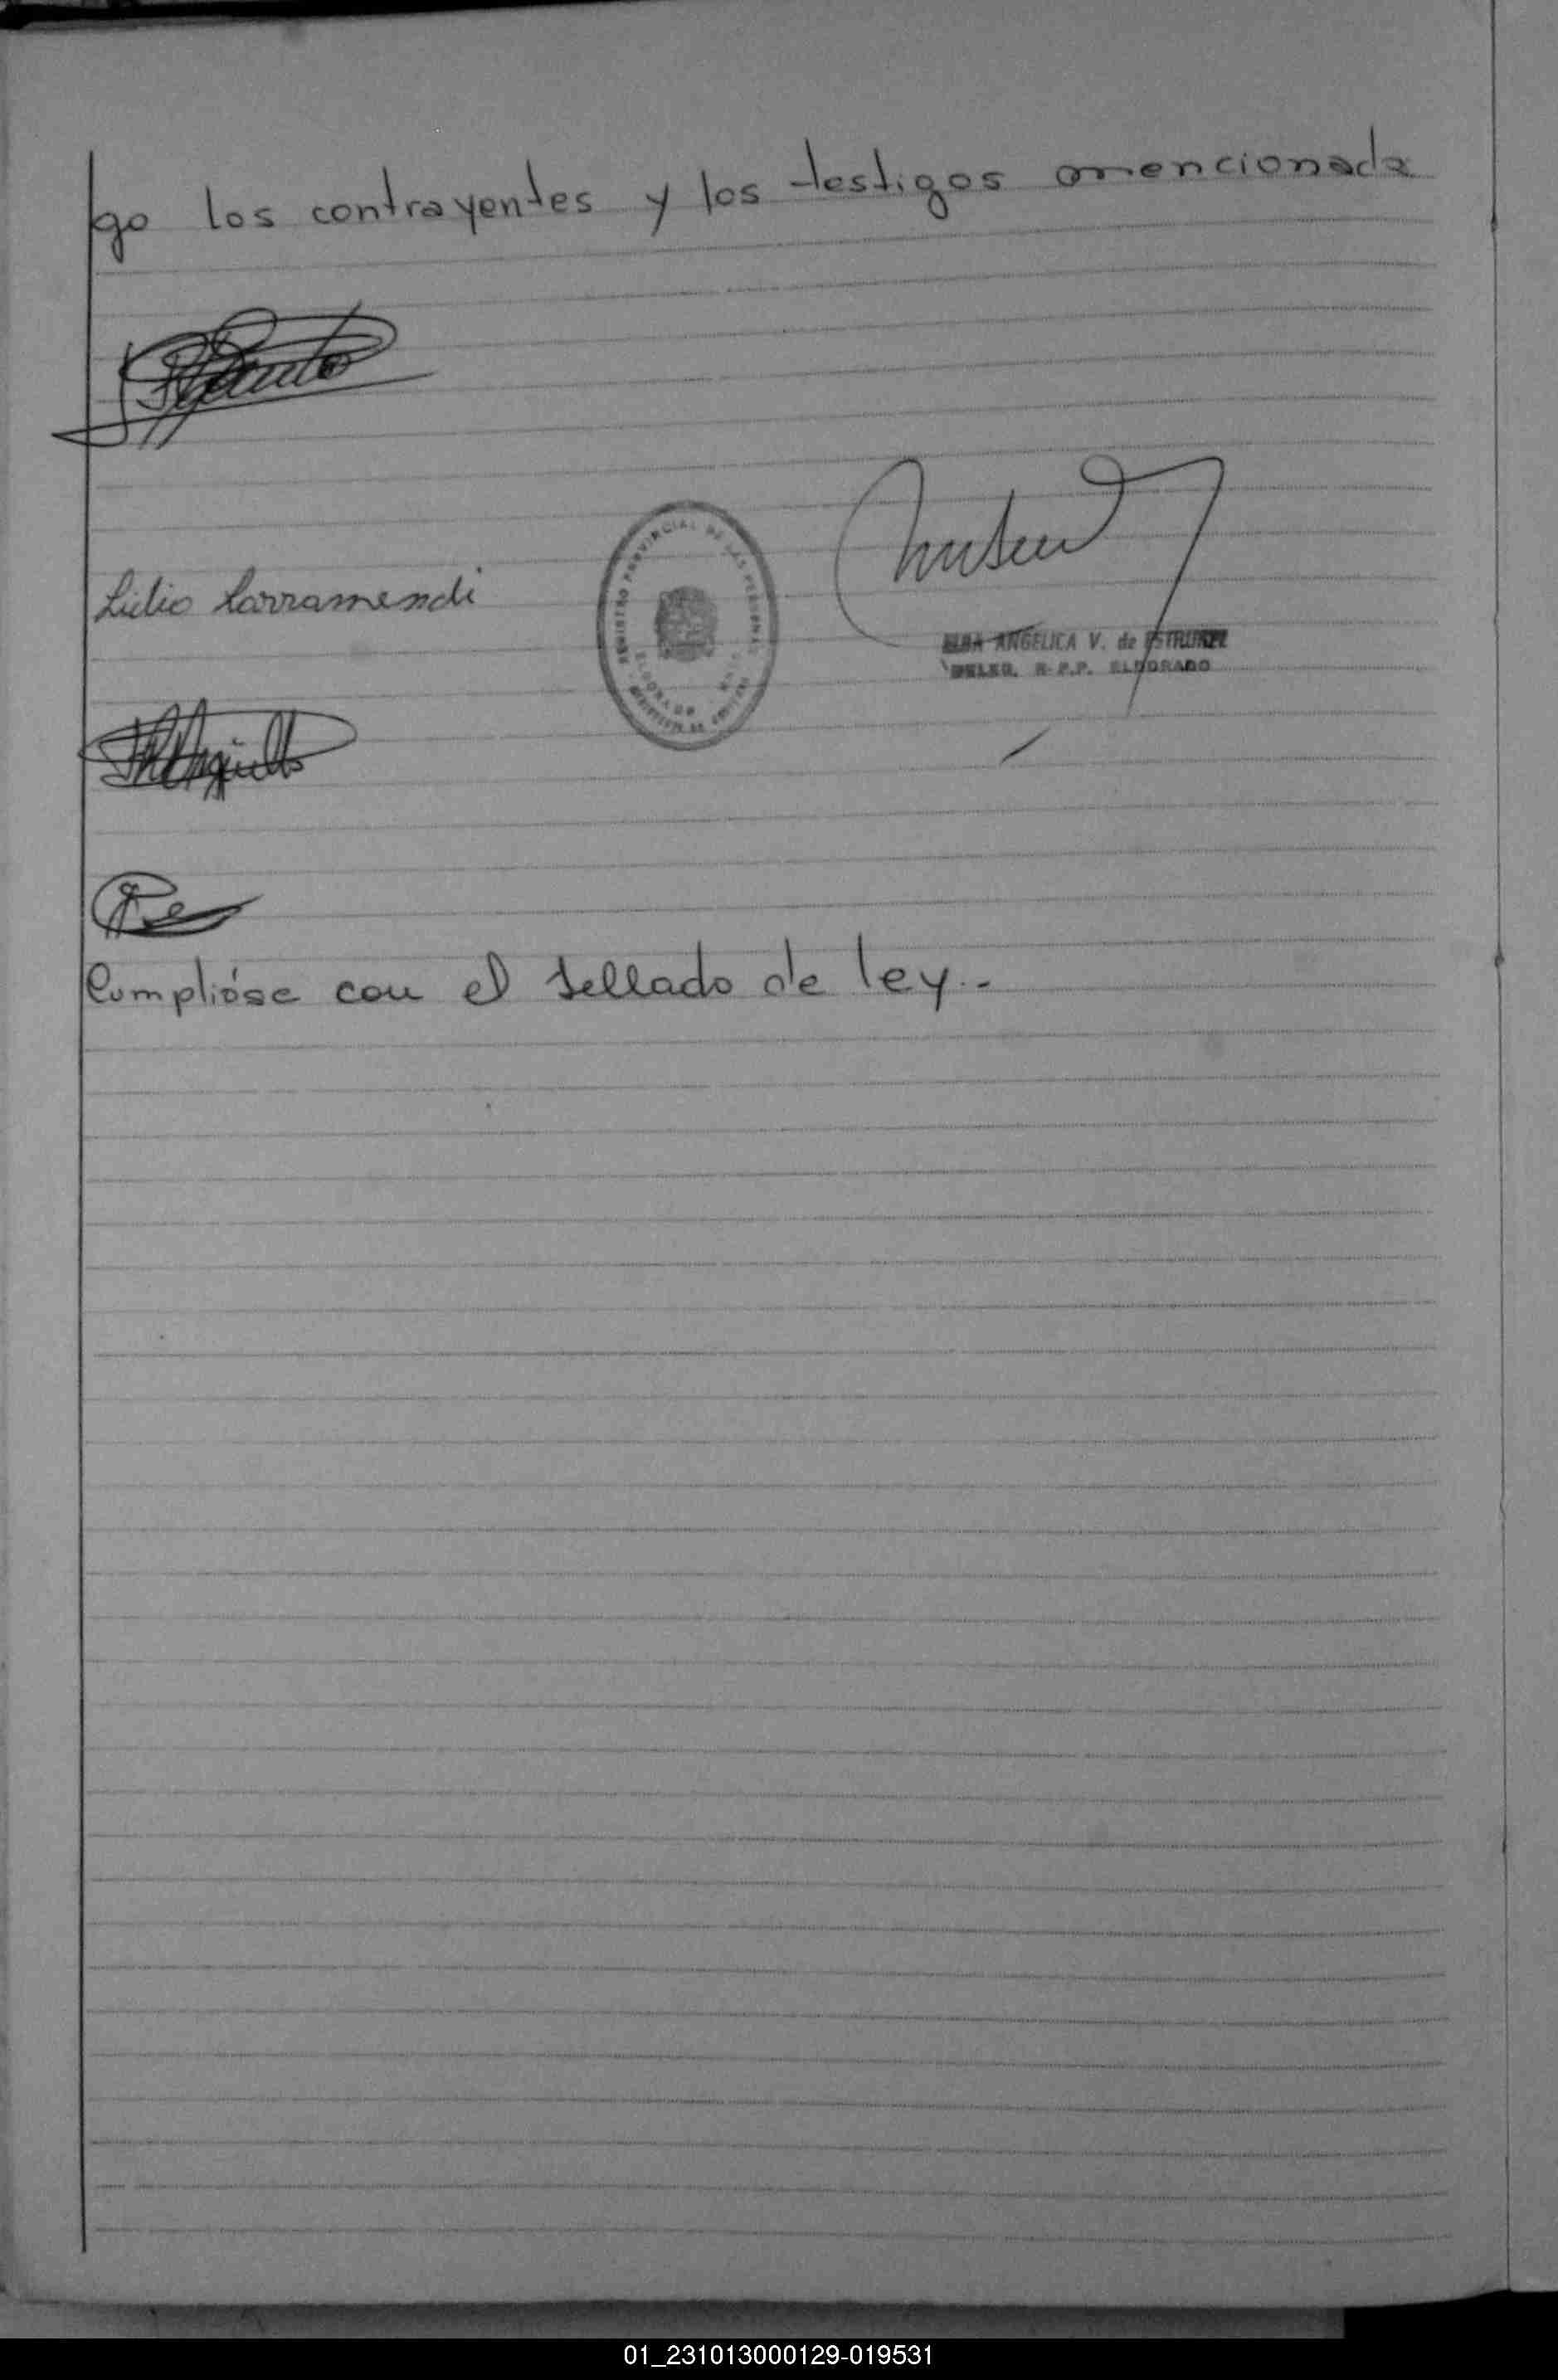 go los contrayentes y los testigos mencionada
Lidio Larramendi
REGISTRO PROVINCIAL DE LAS PERSONAS
ELDORADO
ELBA ANGELICA V. de
DELEG. R.P.P. ELDORADO
Cumplióse con el sellado de ley.-
01_231013000129-019531